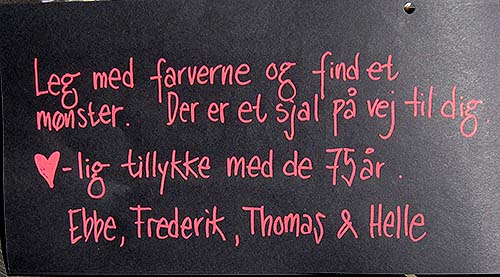 Leg med farverne og find et
mønster. Der er et sjal på vej til dig
♥-lig tillykke med de 75 år.
Ebbe, Frederik, Thomas & Helle